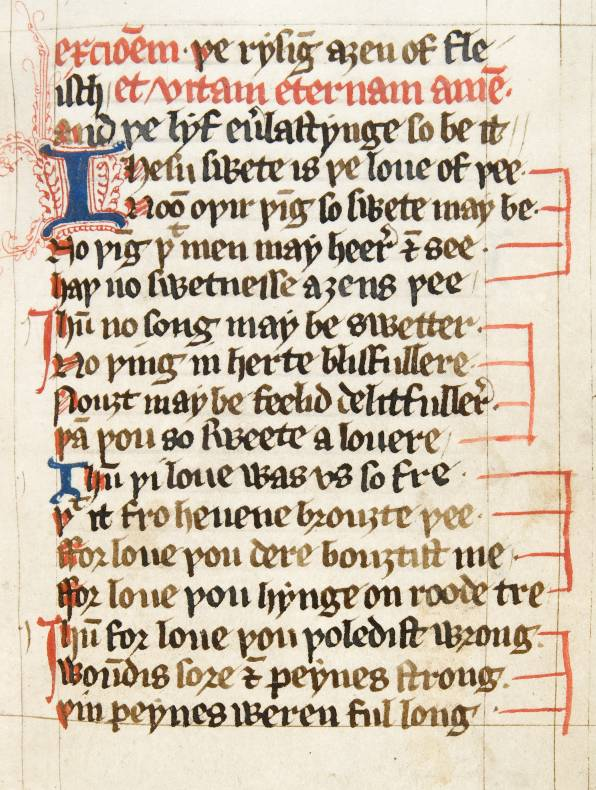 exciōem · þe rysīg aȝen of fle
isch et vitam eternam amē ·
and þe lyf eủlastynge so be it
Ihesu swete is þe loue of þee ·
Noō oþir þīg so swete may be ·
No þīg þᵗ men may heer̉ ⁊ see ·
haþ no swetnesse aȝens þee
Ihū no song may be swetter ·
No þing in herte blisfullere ·
Nouȝt may be feelid delitfuller̉ ·
þā þou so sweete a louere
Ihū þi loue was vs so fre ·
þᵗ it fro heuene brouȝte þee ·
ffor loue þou dere bouȝtist me ·
ffor loue þou hynge on roode tre
Ihū for loue þou þoledist wrong ·
woūdis sore ⁊ peynes strong ·
þin peynes weren ful long